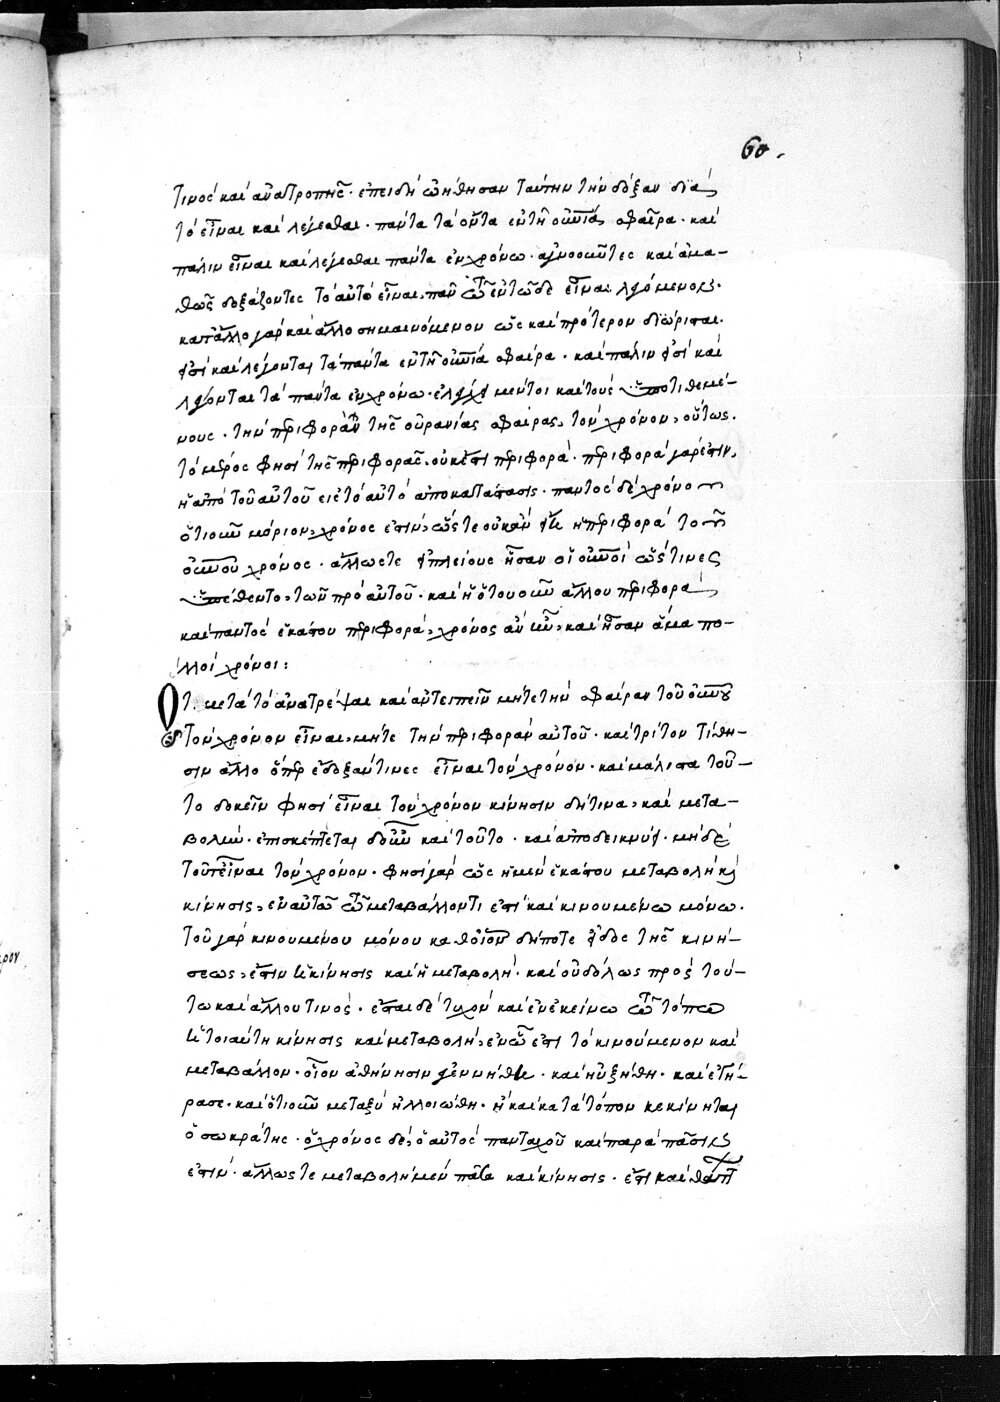 60.
τινος καὶ ἀνατροπῆς· ἐπειδὴ ὠήθησαν ταύτην τὴν δόξαν διὰ
τὸ εἶναι καὶ λέγεσθαι· πάντα τὰ ὄντα ἐν τῇ οὐνίᾳ σφαῖρα· καὶ
πάλιν εἶναι καὶ λέγεσθαι πάντα ἐν χρόνω· ἀγνοοῦντες καὶ ἀμα-
θῶς δοξάζοντες τὸ αὐτὸ εἶναι, πᾶν ἐν τῶδε εἶναι λεγόμενον.
κατ' ἄλλο γὰρ καὶ ἄλλο σημαινόμενον ὡς καὶ πρότερον διώρισται.
εἰσὶ καὶ λέγονται τὰ πάντα ἐν τῇ οὐνίᾳ σφαίρα· καὶ πάλιν εἰσὶ καὶ
λέγονται τὰ πάντα ἐν χρόνω· ἐλέγχει μέντοι καὶ τοὺς ὑποτιθεμέ-
νους· τὴν περιφορὰν τῆς οὐρανίας σφαίρας, τὸν χρόνον, οὕτως.
τὸ μέρος φησὶ τῆς περιφορᾶς, οὐκ ἔστι περιφορά· περιφορὰ γάρ ἐστιν,
ἡ ἀπὸ τοῦ αὐτοῦ εἰς τὸ αὐτὸ ἀποκατάστασις· παντὸς δὲ χρόνου
ὁτιοῦν μόριον, χρόνος ἐστὶν, ὥστε οὐκ ἂν εἴη ἡ περιφορὰ τοῦ
οὐνοῦ χρόνος· ἄλλως τε εἰ πλείους ἦσαν οἱ οὐνοὶ ὥς τινες
ὑπέθεντο, τῶν πρὸ αὐτοῦ· καὶ ἡ ὁτουοῦν ἄλλου περιφορὰ,
καὶ παντὸς ἑκάστου περιφορὰ, χρόνος ἂν ἦν, καὶ ἦσαν ἅμα πο-
λλοὶ χρόνοι:
Ὅτι μετὰ τὸ ἀνατρέψαι καὶ ἀντειπεῖν μήτε τὴν σφαῖραν τοῦ οὐνοῦ
τὸν χρόνον εἶναι, μήτε τὴν περιφορὰν αὐτοῦ· καὶ τρίτον τίθη-
σιν ἄλλο ὅπερ ἐδόξαν τινες εἶναι τὸν χρόνον· καὶ μάλιστα τοῦ-
το δοκεῖν φησὶ εἶναι τὸν χρόνον κίνησιν δή τινα, καὶ μετα-
βολὴν· ἐπισκέπτεται δ' οὖν καὶ τοῦτο· καὶ ἀποδεικνύει· μηδὲ
τοῦτ' εἶναι τὸν χρόνον· φησὶ γὰρ ὡς ἡ μὲν ἑκάστου μεταβολὴ καὶ
κίνησις, ἐν αὐτῶ τῶ μεταβάλλοντι ἐστὶ καὶ κινουμένω μόνω.
τοῦ γὰρ κινουμένου μόνου καθ' οἷον δήποτε εἶδος τῆς κινή-
σεως, ἔστιν ἡ κίνησις καὶ ἡ μεταβολή· καὶ οὐδόλως πρὸς τού-
τω καὶ ἄλλου τινός· ἔσται δὲ τυχὸν καὶ ἐν ἐκείνω τῶ τόπω
ἡ τοιαύτη κίνησις καὶ μεταβολὴ, ἐν ὧ ἐστὶ τὸ κινούμενον καὶ
μεταβάλλον· οἷον ἀθήνησιν γεννήθη· καὶ ηὐξήθη· καὶ ἐγή-
ρασε· καὶ ὁτιοῦν μεταξὺ ἠλλοιώθη· ἢ καὶ κατὰ τόπον κεκίνηται
ὁ σωκράτης· ὁ χρόνος δὲ, ὁ αὐτὸς πανταχοῦ καὶ παρὰ πᾶσιν
ἐστίν· ἄλλως τε μεταβολὴ μὲν πᾶσα καὶ κίνησις· ἔστι καὶ θᾶττ